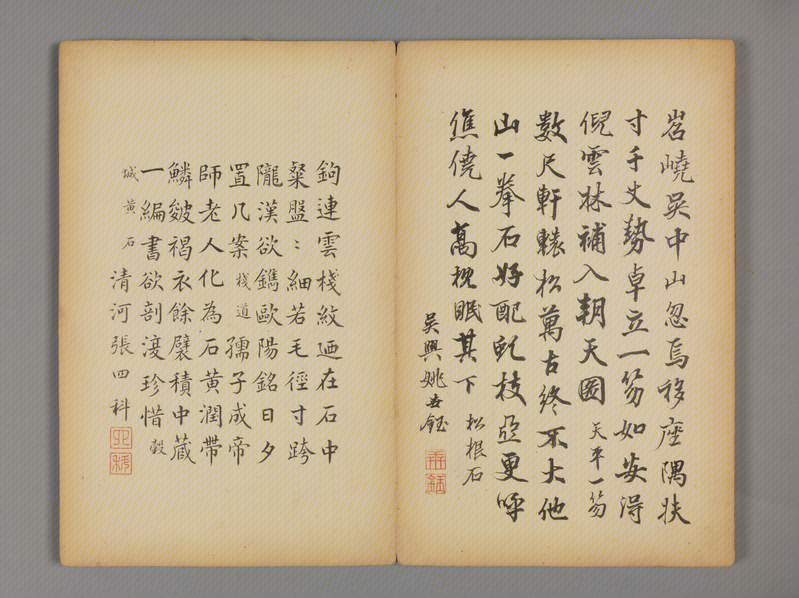 岧嶢吳中山忽焉移座隅扶
寸千丈勢卓立一笏如安得
倪雲林補入朝天圖 天平一笏
數尺軒轅松萬古終不大他
山一拳石好配虬枝亞更呼
僬僥人高枕眠其下 松根石
吳興姚世鈺
鉤連雲棧紋迺在石中
粲盤〻細若毛徑寸跨
隴漢欲鐫歐陽銘日夕
置几案 棧道 孺子成帝
師老人化為石黃潤帶
鱗皴褐衣餘襞積中藏
一編書欲剖湲珍惜 穀
城黃石
清河張四科